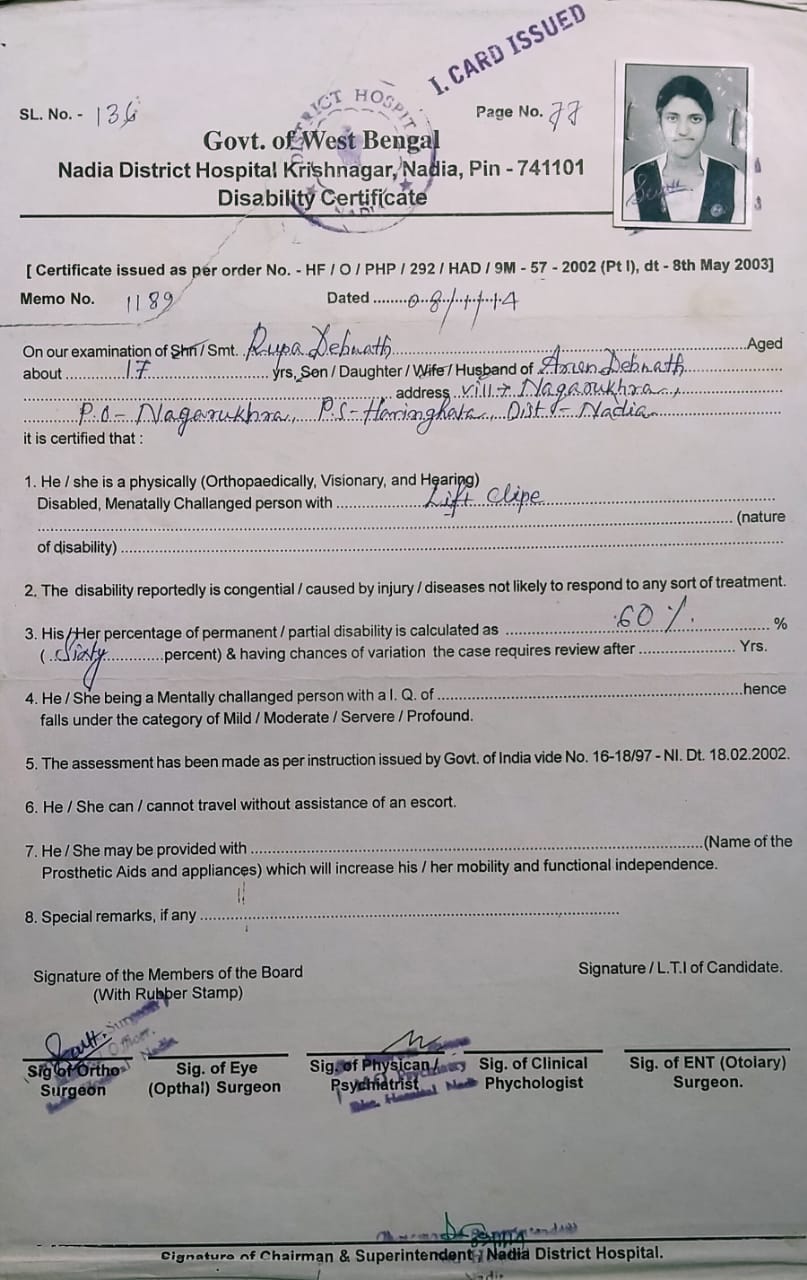 I. CARD ISSUED
SL. No. - 136
Page No. 77
DISTRICT HOSPIT
NADIA
Govt. of West Bengal
Nadia District Hospital Krishnagar, Nadia, Pin - 741101
Disability Certificate
[ Certificate issued as per order No. - HF / O / PHP / 292 / HAD / 9M - 57 - 2002 (Pt I), dt - 8th May 2003]
Memo No. 1189 Dated ........08/11/14
On our examination of Shri / Smt. Rupa Debnath Aged
about 17 yrs, Son / Daughter / Wife / Husband of Debnath
address Vill → Nagarukhra,
P.O - Nagarukhra, P.S - Haringhata, Dist - Nadia
it is certified that :
1. He / she is a physically (Orthopaedically, Visionary, and Hearing)
Disabled, Menatally Challanged person with Lift Clipe
(nature
of disability)
2. The disability reportedly is congential / caused by injury / diseases not likely to respond to any sort of treatment.
3. His/Her percentage of permanent / partial disability is calculated as 60 %. %
( Sixty percent) & having chances of variation the case requires review after Yrs.
4. He / She being a Mentally challanged person with a I. Q. of hence
falls under the category of Mild / Moderate / Servere / Profound.
5. The assessment has been made as per instruction issued by Govt. of India vide No. 16-18/97 - NI. Dt. 18.02.2002.
6. He / She can / cannot travel without assistance of an escort.
7. He / She may be provided with (Name of the
Prosthetic Aids and appliances) which will increase his / her mobility and functional independence.
8. Special remarks, if any
Signature of the Members of the Board
(With Rubber Stamp)
Signature / L.T.I of Candidate.
Sig of Ortho Surgeon
Sig. of Eye (Opthal) Surgeon
Sig. of Physican / Psychiatrist
Sig. of Clinical Phychologist
Sig. of ENT (Otolary) Surgeon.
Signature of Chairman & Superintendent, Nadia District Hospital.